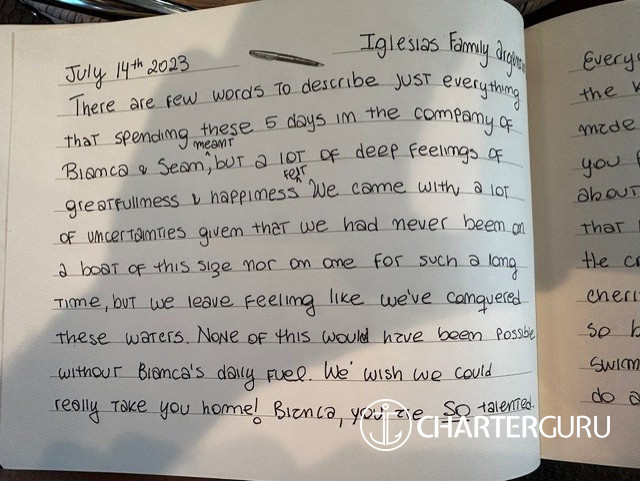 Iglesias Family
July 14th 2023
There are few words to describe just everything
that spending these 5 days in the company of
meant
Bianca & Sean, but a lot of deep feelings of
felt
greatfullness & happiness We came with a lot
of uncertainties given that we had never been on
a boat of this size nor on one for such a long
time, but we leave feeling like we've conquered
these waters. None of this would have been possible
without Bianca's daily fuel. We wish we could
really take you home! Bianca, you are so talented.
Every
the
made
you
about
that
the cr
cheri
so b
swim
do a
CHARTERGURU